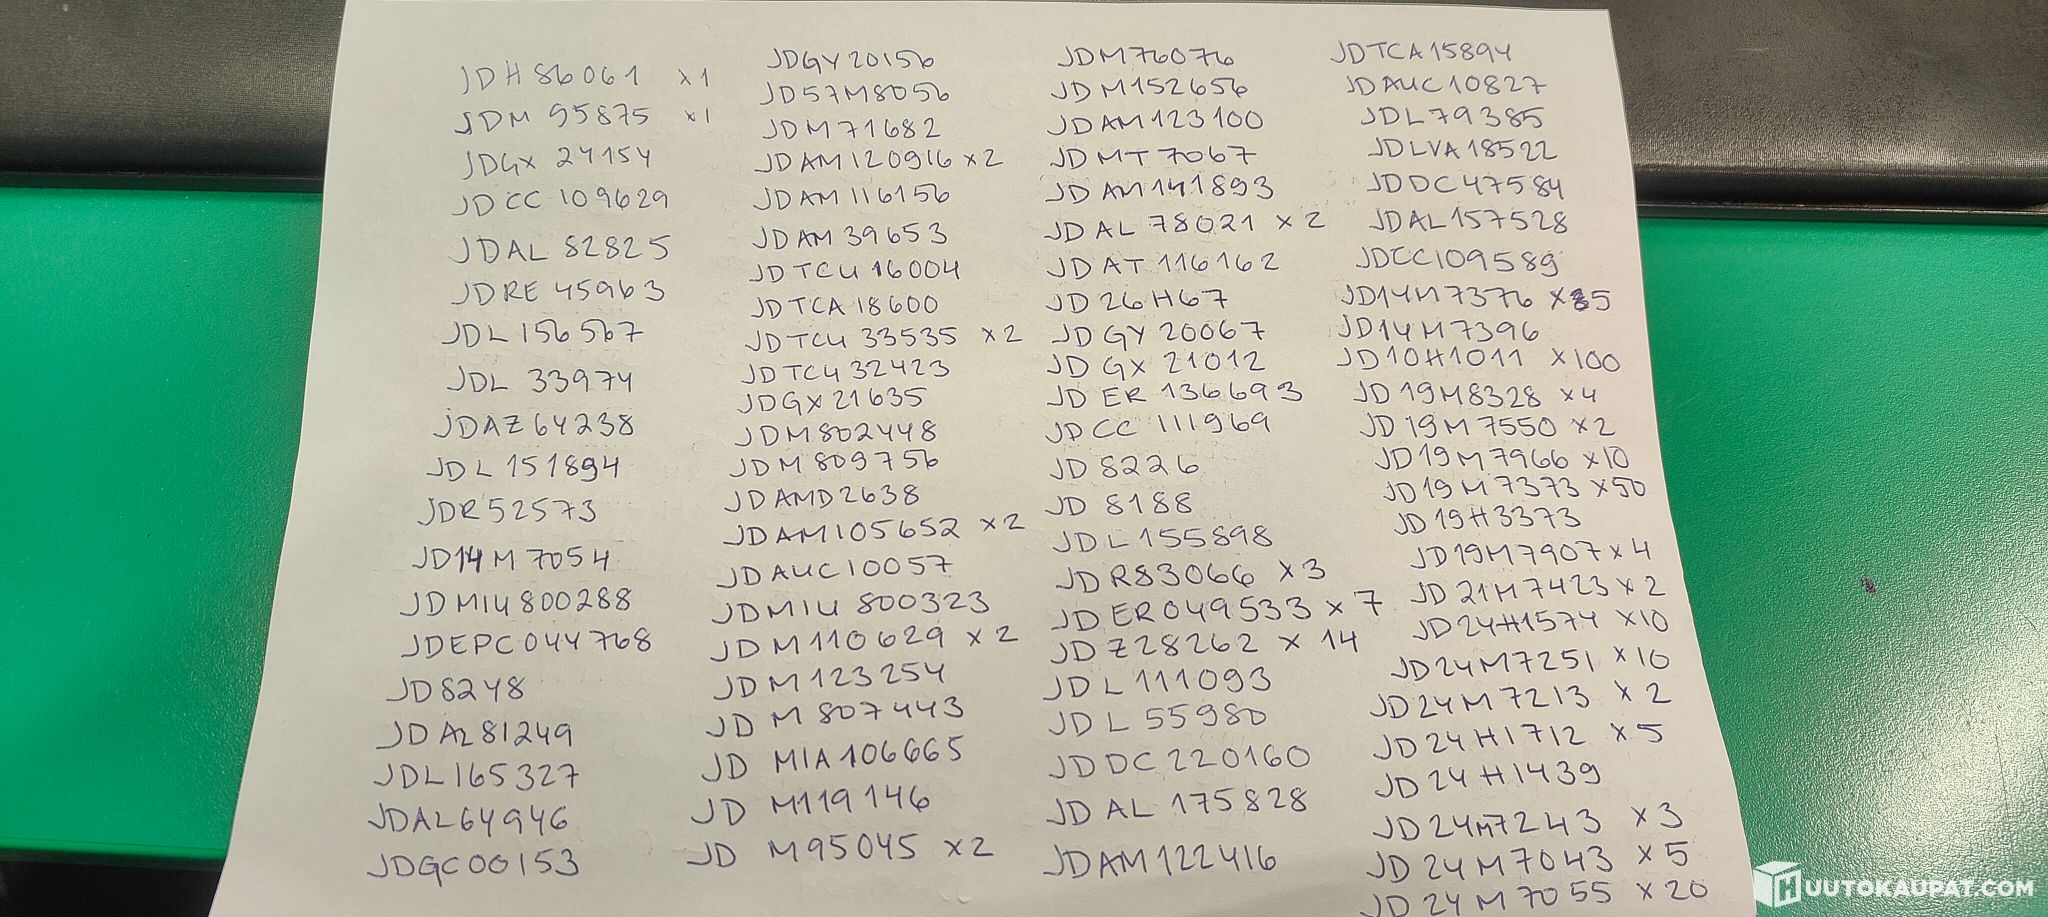 JDH86061 x1
JDM 95875 x1
JDGX 24154
JDCC 109629
JDAL 82825
JDRE 45963
JDL 156567
JDL 33974
JDAZ64238
JDL 151894
JDR52573
JD14M7054
JDMIU800288
JDEPC044768
JD8248
JDAL81249
JDL165327
JDAL64946
JDGC00153
JDGY20156
JD57M8056
JDM71682
JDAM120916 x2
JDAM116156
JDAM39653
JDTCU16004
JDTCA18600
JDTCU 33535 x2
JDTCU32423
JDGX21635
JDM802448
JDM809756
JDAMD2638
JDAM105652 x2
JDAUC10057
JDMIU 800323
JDM110629 x2
JDM123254
JD M807443
JD MIA106665
JD M119146
JD M95045 x2
JDM76076
JDM152656
JDAM123100
JDMT7067
JDAM141893
JDAL 78021 x2
JDAT 116162
JD26H67
JDGY 20067
JDGX 21012
JDER 136693
JDCC 111969
JD 8226
JD 8188
JDL155898
JDR83066 x3
JDER049533 x 7
JDZ28262 x 14
JDL111093
JDL 55980
JDDC220160
JDAL 175828
JDAM122416
JDTCA15894
JDAUC10827
JDL79385
JDLVA18522
JDDC47584
JDAL157528
JDCC109589
JD14M7376 x5
JD14M7396
JD10H1011 x100
JD19M8328 x4
JD19M7550 x2
JD19M7966 x10
JD19M7373 x50
JD19H3373
JD19M7907 x4
JD21M7423 x2
JD24H1574 x10
JD24M7251 x10
JD24M7213 x2
JD24H1712 x5
JD24H1439
JD24M7243 x3
JD24M7043 x5
JD24M7055 x20
HUUTOKAUPAT.COM